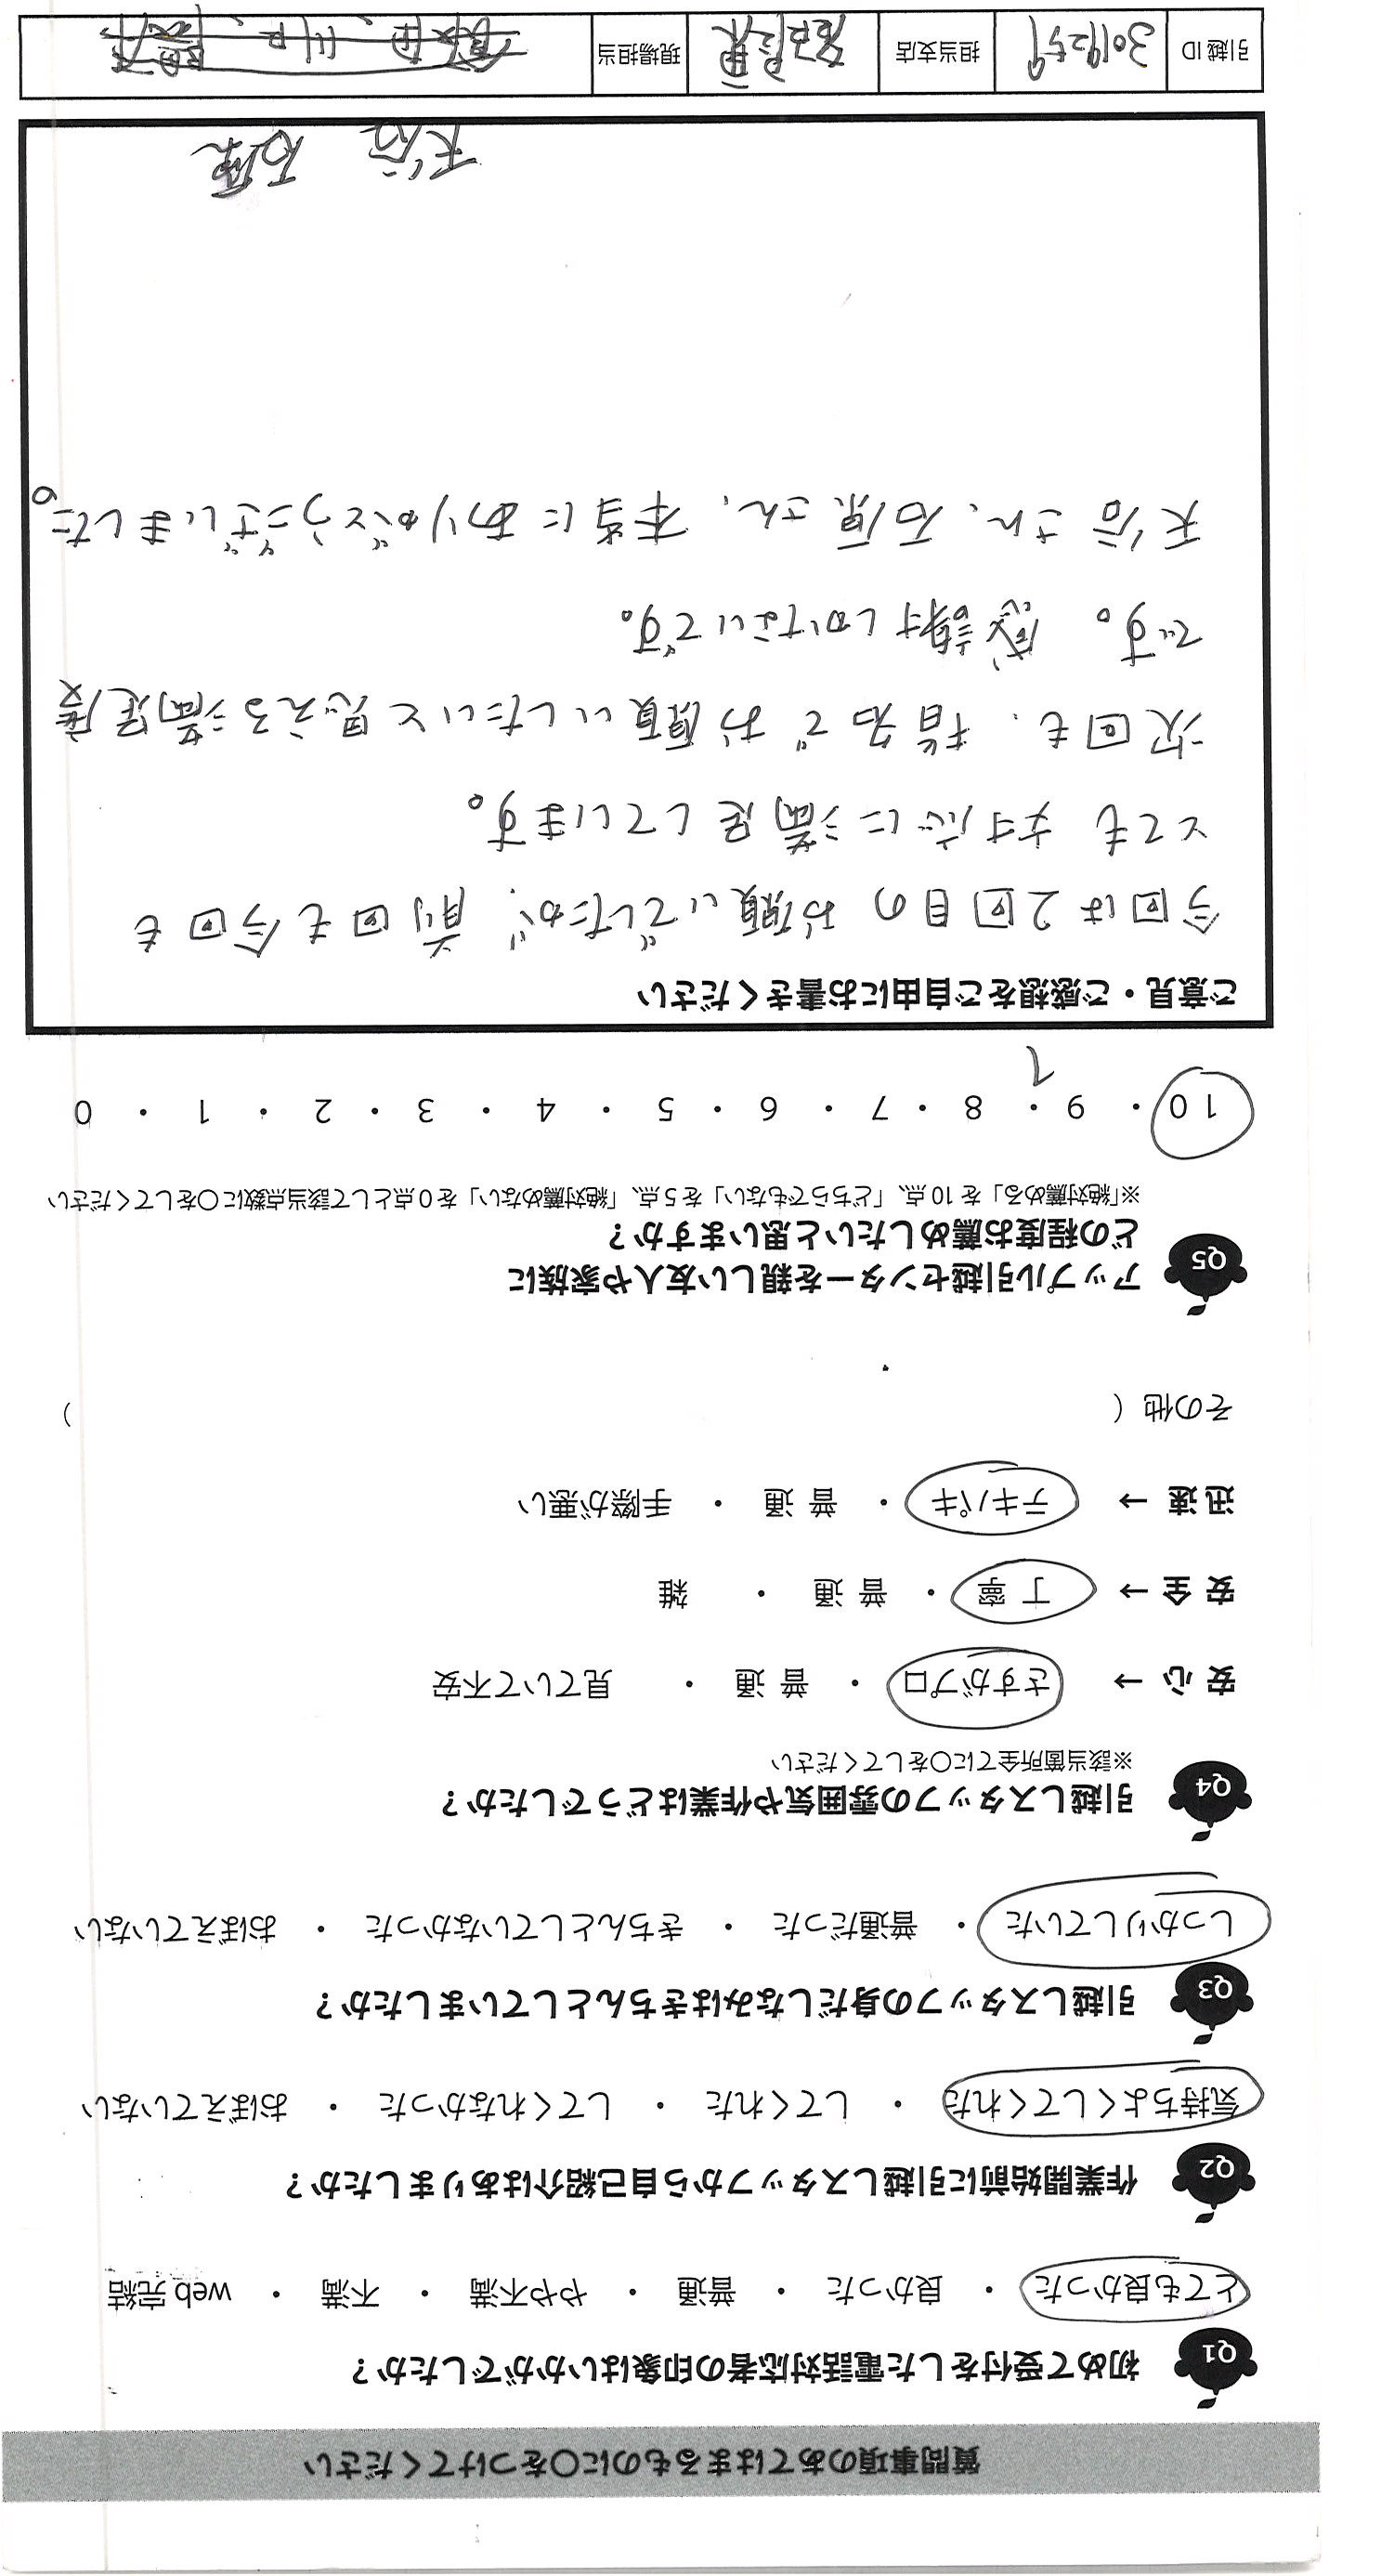 質問事項のあてはまるものに〇をつけてください
Q1 初めて受付をした電話対応者の印象はいかがでしたか？
とても良かった ・ 良かった ・ 普通 ・ やや不満 ・ 不満 ・ web 完結
Q2 作業開始前に引越しスタッフから自己紹介はありましたか？
気持ちよくしてくれた ・ してくれた ・ してくれなかった ・ おぼえていない
Q3 引越しスタッフの身だしなみはきちんとしていましたか？
しっかりしていた ・ 普通だった ・ きちんとしていなかった ・ おぼえていない
Q4 引越しスタッフの雰囲気や作業はどうでしたか？
※該当箇所全てに〇をしてください
安 心 → さすがプロ ・ 普 通 ・ 見ていて不安
安 全 → 丁 寧 ・ 普 通 ・ 雑
迅 速 → テキパキ ・ 普 通 ・ 手際が悪い
その他（ ）
Q5 アップル引越センターを親しい友人や家族に
どの程度お薦めしたいと思いますか？
※「絶対薦める」を 10 点、「どちらでもない」を 5 点、「絶対薦めない」を 0 点として該当点数に〇をしてください
10 ・ 9 ・ 8 ・ 7 ・ 6 ・ 5 ・ 4 ・ 3 ・ 2 ・ 1 ・ 0
ご意見・ご感想をご自由にお書きください
今回は2回目のお願いでしたが、前回も今回も
とても対応に満足しています。
次回も、指名でお願いしたいと思える満足度
です。 感謝しかないです。
天谷さん、石原さん、本当にありがとうございました。
天谷 石原
引越 ID 3019259 担当支店 現場担当